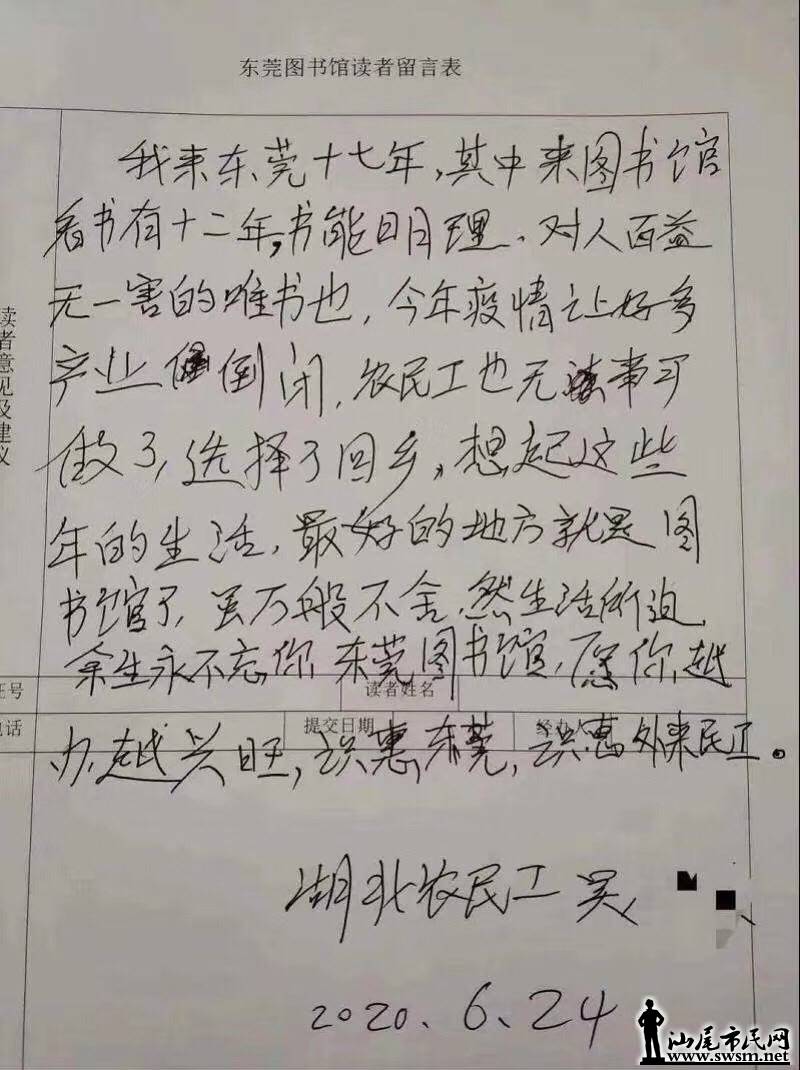 东莞图书馆读者留言表
我来东莞十七年,其中来图书馆
看书有十二年,书能明理、对人百益
无一害的唯书也,今年疫情让好多
产业倒闭,农民工也无事可
做了,选择了回乡,想起这些
年的生活,最好的地方就是图
书馆了,虽万般不舍,然生活所迫,
余生永不忘你,东莞图书馆,愿你越
办越兴旺,识惠东莞,识惠外来民工。
湖北农民工 吴
2020、6、24
读者意见及建议
证号
读者姓名
电话
提交日期
经办人
汕尾市民网
www.swsm.net